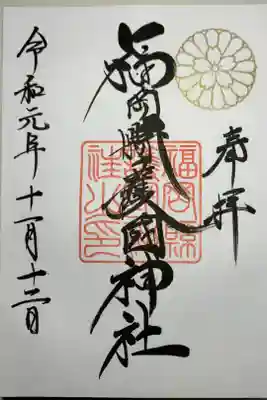 奉拝
福岡縣護國神社
福岡縣
社之印
令和元年十一月十二日